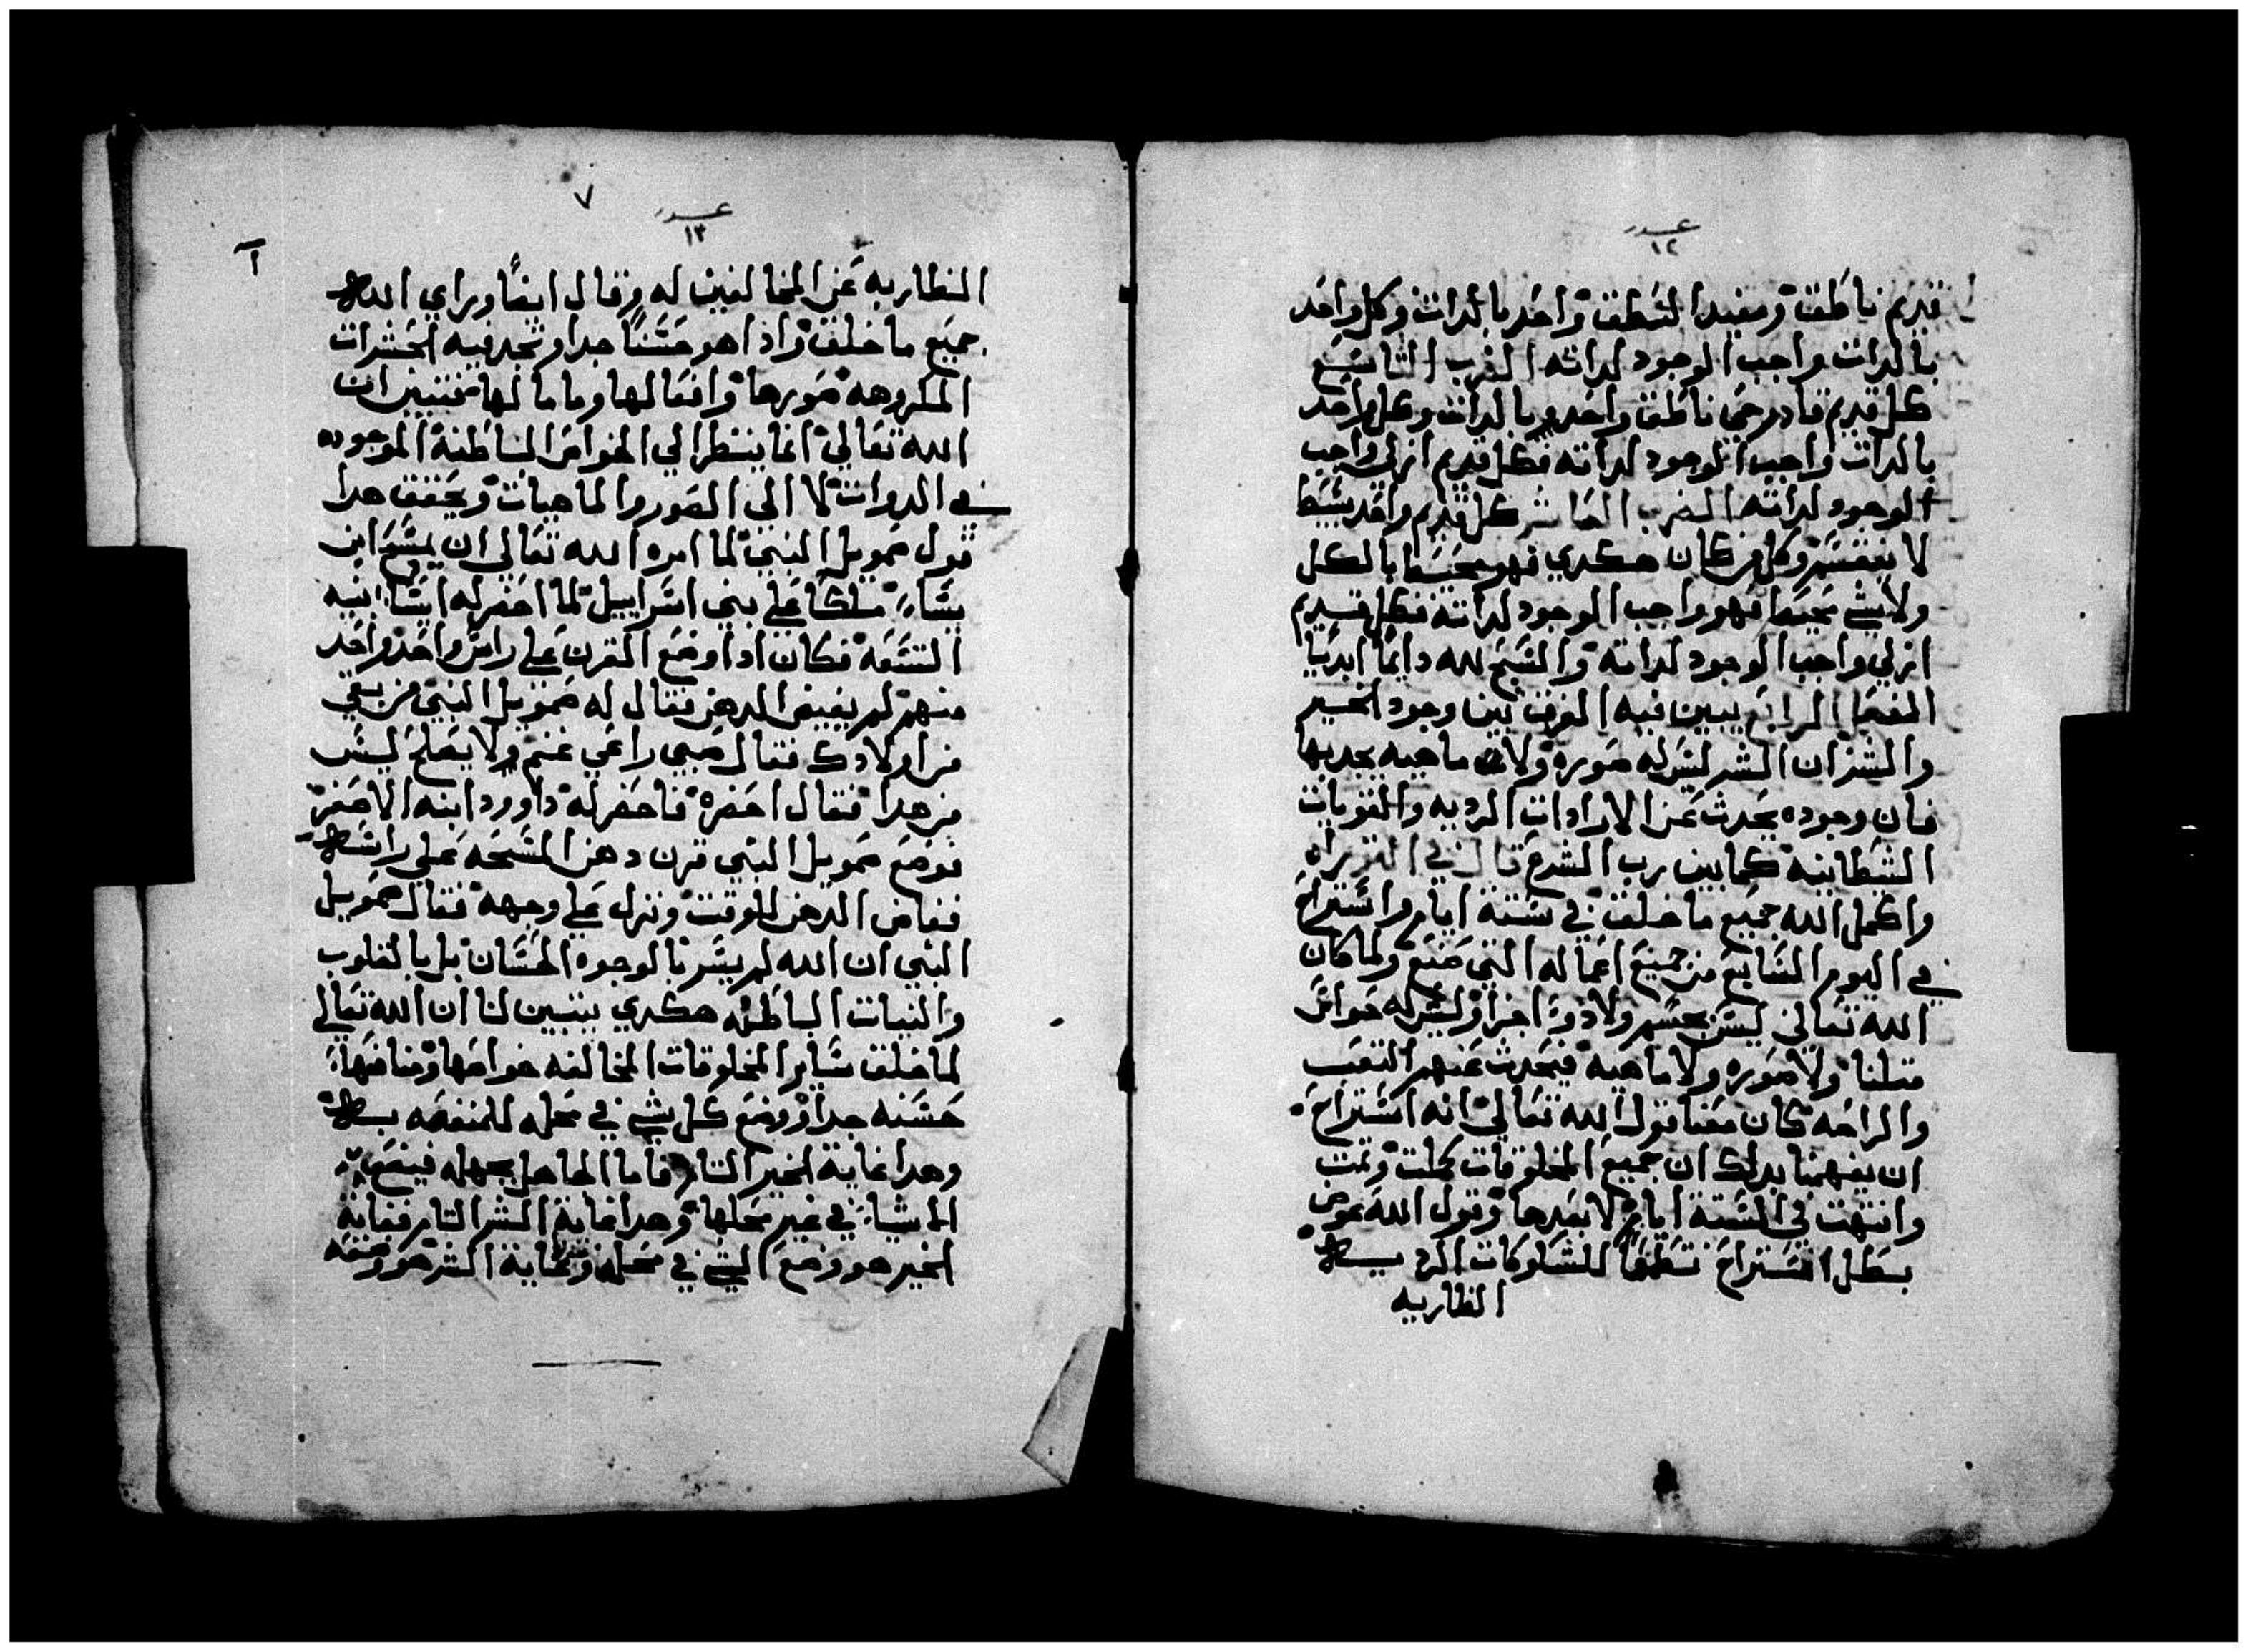 عدد
١٢
قديم ناطق ومفيد النطق واحد بالدات وكل واحد
بالدات واجب الوجود لداته الضرب التاسع
كل قديم قادر حي ناطق واحد بالدات وكل واحد
بالدات واجب الوجود لداته فكل قديم ازلي واجب
الوجود لداته الضرب العاشر كل قديم واحد بسيط
لا ينقسم وكل من كان هكدي فهو محيط بالكل
ولا شي يحيط فهو واجب الوجود لداته فكل قديم
ازلي واجب الوجود لداته والسبح لله دايمًا ابديًا
الفصل الرابع يبين فيه الفرق بين وجود الخير
والشر ان الشر ليس له صوره ولا ماهيه يجد بها
فان وجوده يحدث عن الارادات الرديه والقويات
الشيطانيه كما بين رب الشرع قال في التوراه
واكمل الله جميع ما خلق في ستة ايام واستراح
في اليوم السابع من جميع اعماله التي صنع ولما كان
الله تعالي ليس بجسم ولا دو اجزا وليس له حواس
متلنا ولا صوره ولا ماهيه فيحدث عنهم التعب
والراحه كان معنا قول الله تعالي انه استراح
ان يفهمنا بدلك ان جميع المخلوقات كملت وتمت
وانتهت في الستة ايام لا بعدها وقول الله عوض
بطل استراح تعظيمًا للشكوكات الرديه
الظاربه
٧
عدد
١٣
الظاربه عن المخالفين له وقال ايضًا وراي الله
جميع ما خلق واذا هو حسنًا جدا ونجد فيه الحشرات
المكروهه صورها وافعالها وما لها فتبين ان
الله تعالي انما ينظر الي الخواص الباطنة الموجوده
في الدوات لا الي الصور والماهيات ويحقق هدا
قول صمويل النبي لما امره الله تعالي ان يمسح ابن
يشاي ملكا علي بني اسراييل لما احضر له ايشا بنيه
التسعه فكان ادا وضع القرن علي راس واحد واحد
منهم لم يفيض الدهن فقال له صمويل النبي من بقي
من اولادك فقال صبي راعي غنم ولا يصلح ليس
من هدا فقال احضره فاحضر له داوود ابنه الاصغر
فوضع صمويل النبي قرن دهن المسحه علي راسه
ففاض الدهن للوقت ونزل علي وجهه فقال صمويل
النبي ان الله لم يسر بالوجوه الحسان بل بالقلوب
والنيات الباطنه هكدي يتبين لنا ان الله تعالي
لما خلق ساير المخلوقات المخالفه خواصها ومنافعها
حسنه جدا ووضع كل شي في محله للمنفعه
وهدا غاية الخير التام فاما الجاهل بجهله فيضع
الاشيا في غير محلها وهدا غاية الشر التام فغاية
الخير هو وضع الشي في محله وغاية الشر هو وضعه